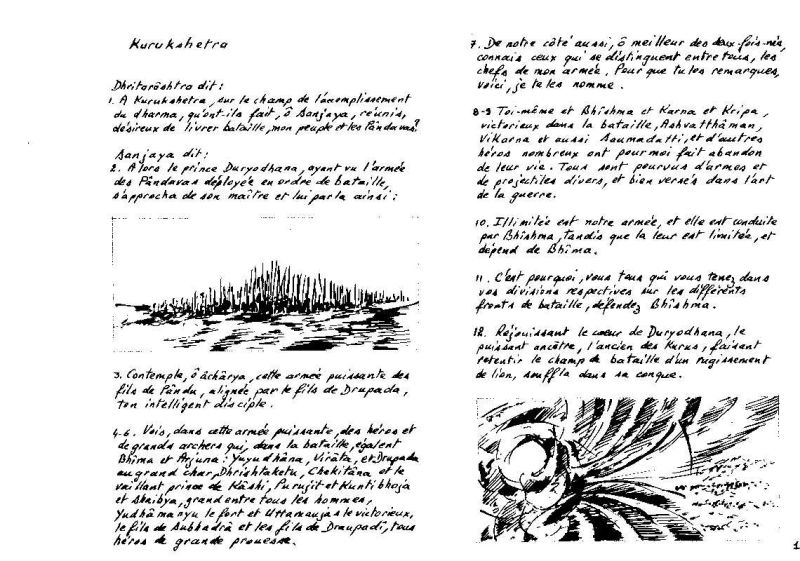 Kurukshetra
Dhritarâshtra dit :
1. A Kurukshetra, sur le champ de l'accomplissement
du dharma, qu'ont-ils fait, ô Sanjaya, réunis,
désireux de livrer bataille, mon peuple et les Pândavas?
Sanjaya dit :
2. Alors le prince Duryodhana, ayant vu l'armée
des Pândavas déployée en ordre de bataille,
s'approcha de son maître et lui parla ainsi :
3. Contemple, ô âchârya, cette armée puissante des
fils de Pându, alignée par le fils de Drupada,
ton intelligent disciple.
4-6. Vois, dans cette armée puissante, des héros et
de grands archers qui, dans la bataille, égalent
Bhîma et Arjuna : Yuyudhâna, Virâta, et Drupada
au grand char, Dhrishtaketu, Chekitâna et le
vaillant prince de Kâshi, Purujit et Kuntibhoja
et Shaibya, grand entre tous les hommes,
Yudhâmanyu le fort et Uttamauja le victorieux,
le fils de Subhadrâ et les fils de Draupadî, tous
héros de grande prouesse.
7. De notre côté aussi, ô meilleur des deux-fois-nés,
connais ceux qui se distinguent entre tous, les
chefs de mon armée. Pour que tu les remarques,
voici, je te les nomme.
8-9 Toi-même et Bhîshma et Karna et Kripa,
victorieux dans la bataille, Ashvatthâman,
Vikarna et aussi Saumadatti, et d'autres
héros nombreux ont pour moi fait abandon
de leur vie. Tous sont pourvus d'armes et
de projectiles divers, et bien versés dans l'art
de la guerre.
10. Illimitée est notre armée, et elle est conduite
par Bhîshma, tandis que la leur est limitée, et
dépend de Bhîma.
11. C'est pourquoi, vous tous qui vous tenez dans
vos divisions respectives sur les différents
fronts de bataille, défendez Bhîshma.
12. Réjouissant le cœur de Duryodhana, le
puissant ancêtre, l'ancien des Kurus, faisant
retentir le champ de bataille d'un rugissement
de lion, souffla dans sa conque.
1